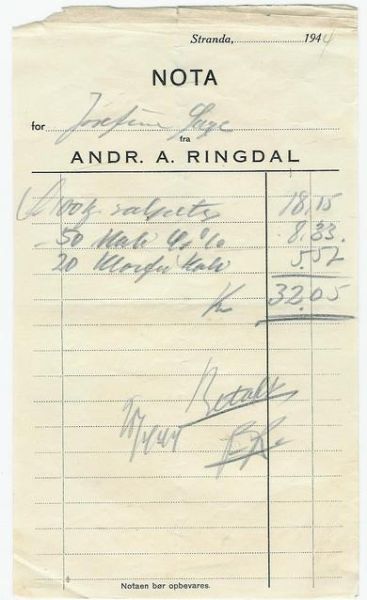 Stranda, 1944
NOTA
for Josefine
fra
ANDR. A. RINGDAL
100 kg. salpeter 18,15
50 Kali 40% 8.33.
20 Klorfri Kali 5.57
Kr 32.05
Betalt
Notaen bør opbevares.